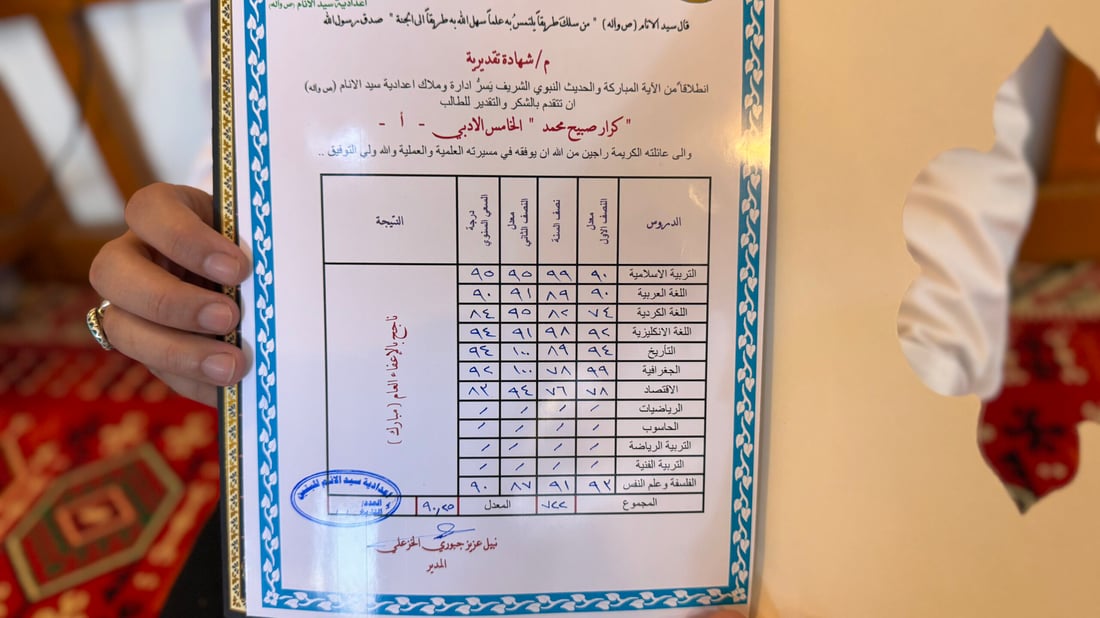 اعدادية سيد الانام (ص وآله)
قال سيد الانام (ص وآله) " من سلك طريقاً يلتمسُ به علماً سهل الله به طريقاً الى الجنة " صدق رسول الله
م/ شهادة تقديرية
انطلاقاً من الآية المباركة والحديث النبوي الشريف يَسرُّ ادارة وملاك اعدادية سيد الانام (ص وآله)
ان تتقدم بالشكر والتقدير للطالب
" كرار صبيح محمد " الخامس الادبي - أ -
والى عائلته الكريمة راجين من الله ان يوفقه في مسيرته العلمية والعملية والله ولي التوفيق ..
الدروس معدل النصف الاول نصف السنة معدل النصف الثاني درجة السعي السنوي النتيجة
التربية الاسلامية ٩٠ ٩٩ ٩٥ ٩٥
اللغة العربية ٩٠ ٨٩ ٩١ ٩٠
اللغة الكردية ٧٤ ٨٢ ٩٥ ٨٤
اللغة الانكليزية ٩٢ ٩٨ ٩١ ٩٤
التأريخ ٩٤ ٨٩ ١٠٠ ٩٤
الجغرافية ٩٩ ٧٨ ١٠٠ ٩٢
الاقتصاد ٧٨ ٧٦ ٩٤ ٨٣
الرياضيات / / / /
الحاسوب / / / /
التربية الرياضة / / / /
التربية الفنية / / / /
الفلسفة وعلم النفس ٩٣ ٩١ ٨٧ ٩٠
ناجح بالإعفاء العام ( مبارك )
المجموع ٧٢٢ المعدل ٩٠,٢٥
اعدادية سيد الانام للبنين
العدد
نبيل عزيز جبوري الخزعلي
المدير